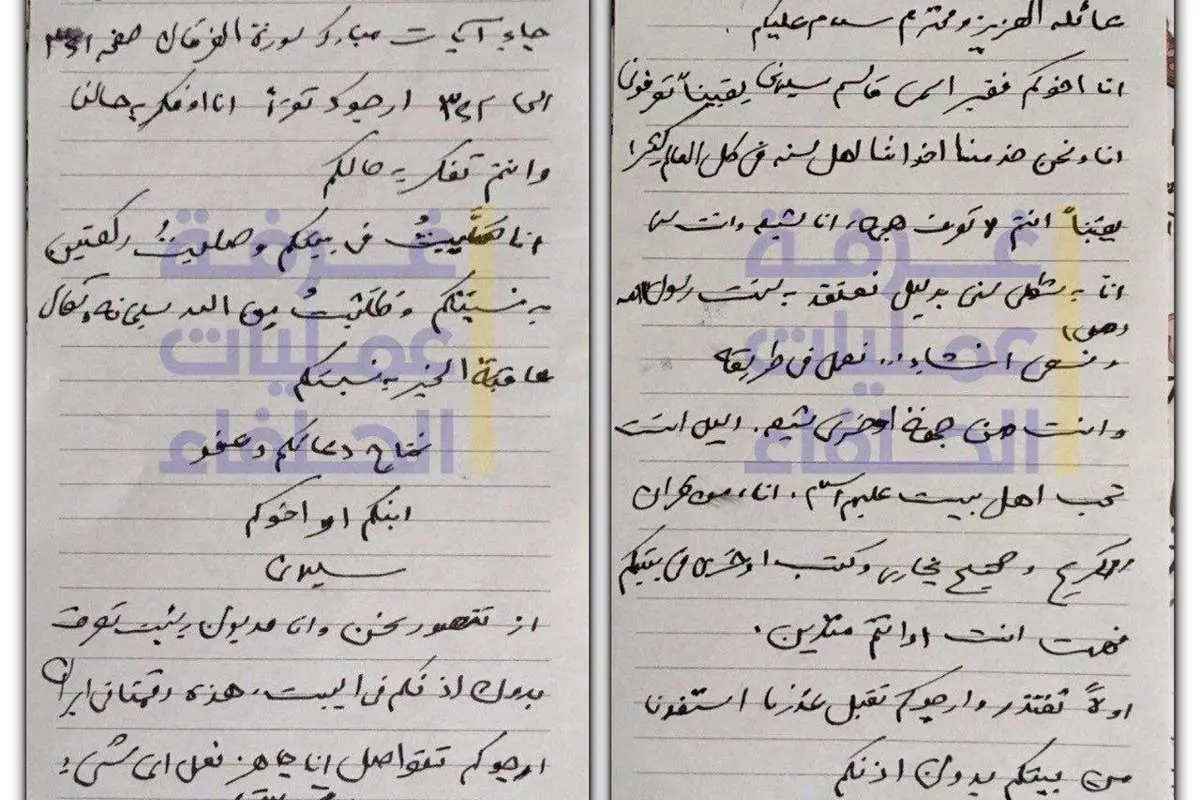 عائله العزيز و محترم سلام عليكم.
انا اخوكم فقير اسمى قاسم سليمانى يقيناً تعرفونا
انا ونحن خدمنا اخواننا اهل سنه فى كل العالم كثيرا
يقيناً انتم لا تعرف جيد، انا شيعه وانت سنى
انا به شكلى سنى بدليل نعتقد به سنت رسول الله
(ص)
و نسعى انشاء الله نعمل فى طريقة
و انت من جهة اوخرى شيعه. اليل انت
تحب اهل بيت عليهم اسلام. انا، من قران
الكريم و صحيح بخارى و كتب اوخرى فى بيتكم
فهمت انت او انتم متدين.
اولاً نعتذر و ارجوكم تقبل عذرنا استفدنا
من بيتكم بدون اذنكم
جاء آيات مباركه سورة الفرقان صفحه ٣٦١
الى ٣٦٢ ارجوك تقرأ انا اوفكر به حالنا
و انتم تفكر به حالكم
انا صَلَّيتُ فى بيتكم و صليتُ ركعتين
به نسيتكم و طَلَبتُ من الله سبحانه و تعال
عاقبة الخير به نسبتكم
نحتاج دعائكم و عفو
ابنكم او اخوكم
سليمانى
از تتصور نحن و انا مديون به بيت تعرف
بدون اذنكم فى البيت، هذه رقمنا فى ايران
ارجوكم تتواصل انا جاهز نعمل اى شىء